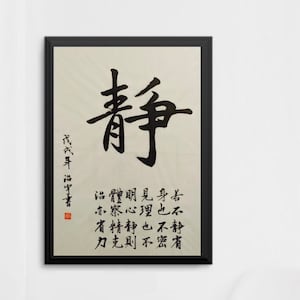 靜
若不靜省
身也不密
見理也不
明心靜則
體察精克
治亦省力
戊戌年 書